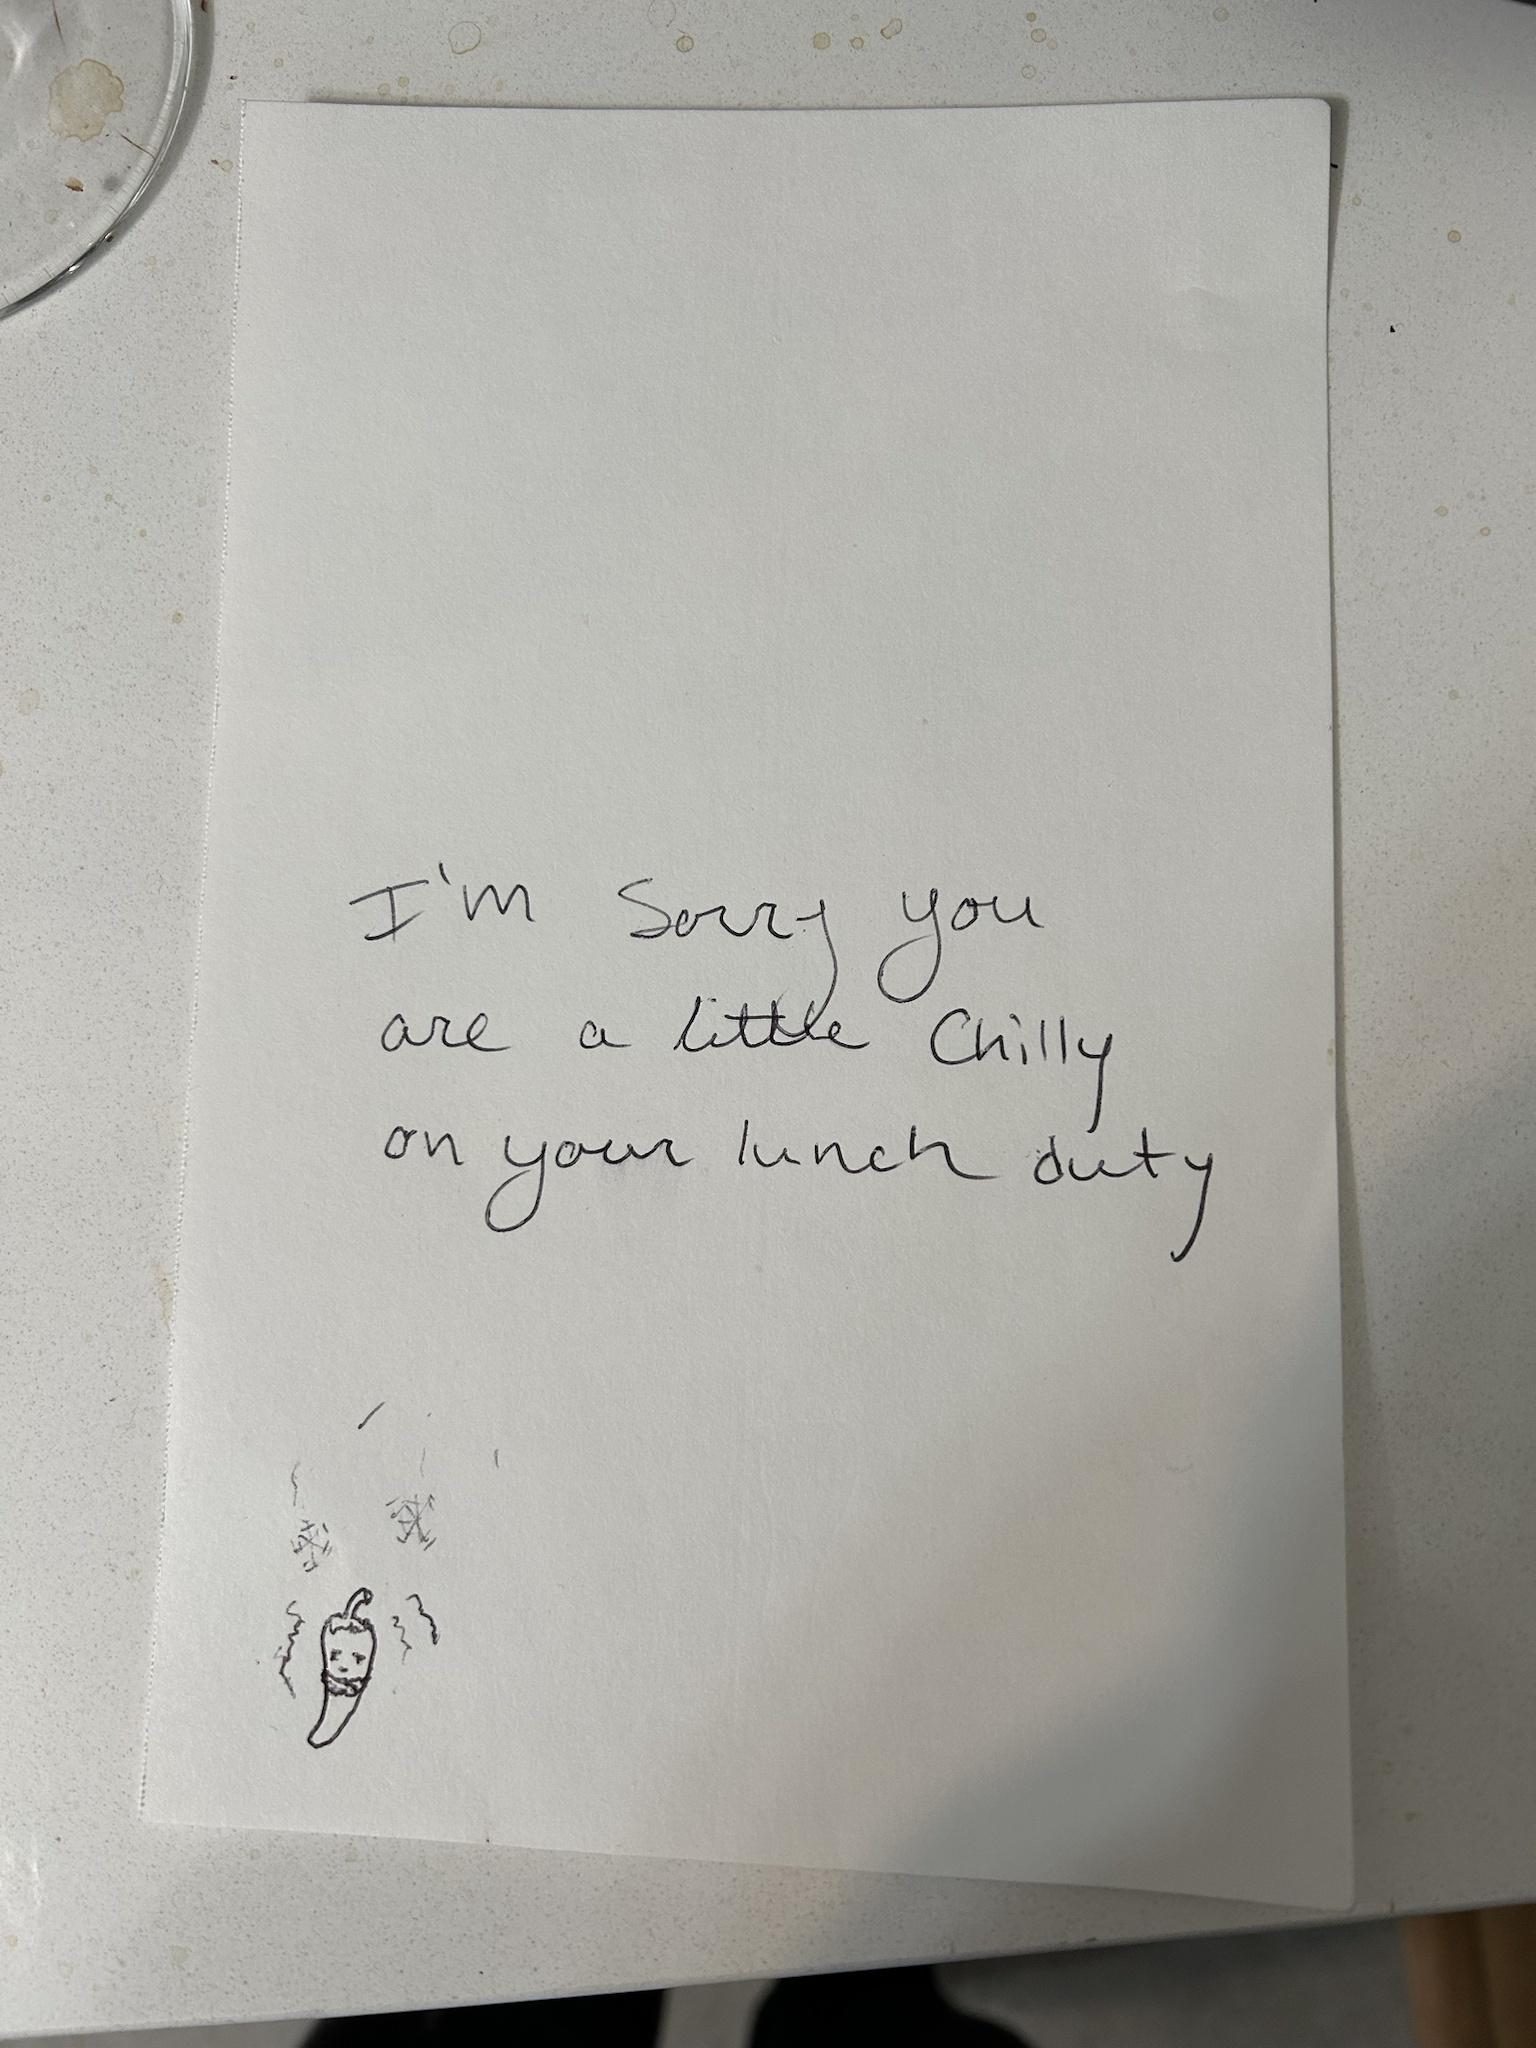 I'm Sorry you
are a little Chilly
on your lunch duty